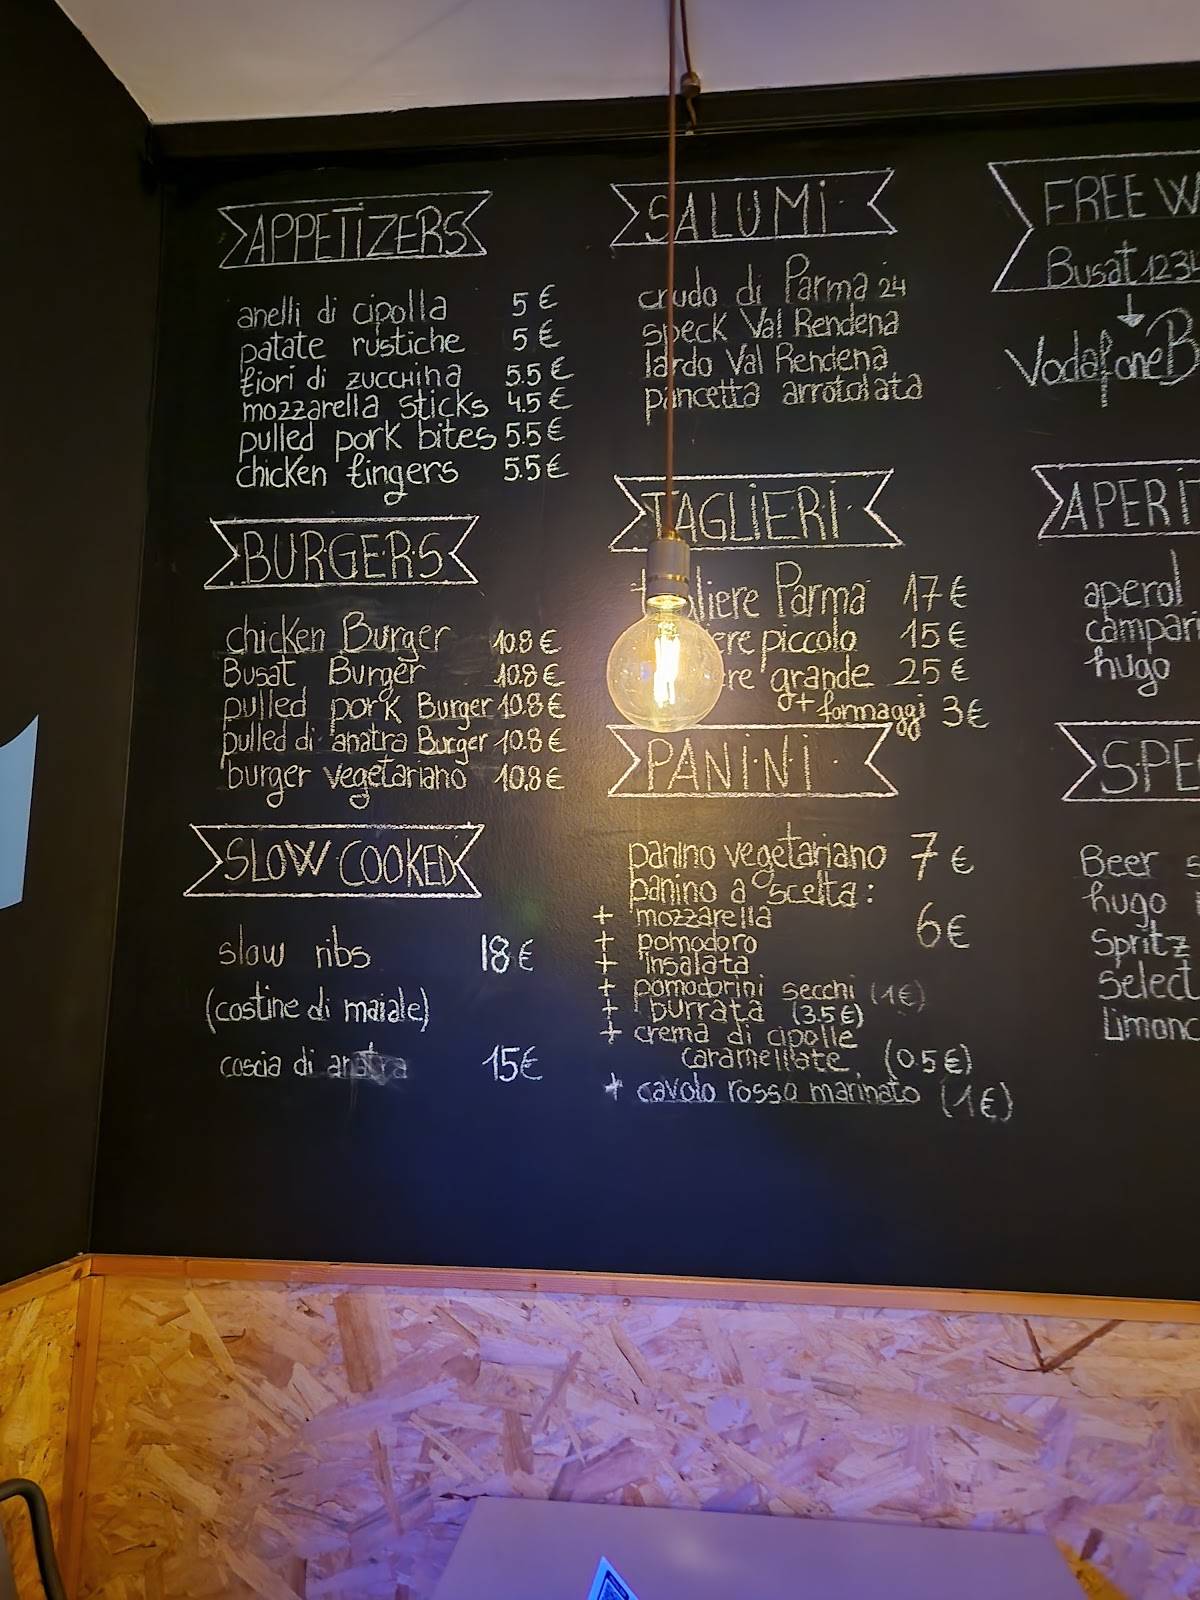 APPETIZERS
anelli di cipolla 5 €
patate rustiche 5 €
fiori di zucchina 5.5 €
mozzarella sticks 4.5 €
pulled pork bites 5.5 €
chicken fingers 5.5 €
BURGERS
chicken Burger 10.8 €
Busat Burger 10.8 €
pulled pork Burger 10.8 €
pulled di anatra Burger 10.8 €
burger vegetariano 10.8 €
SLOW COOKED
slow ribs 18 €
(costine di maiale)
coscia di anatra 15 €
SALUMI
crudo di Parma 24
speck Val Rendena
lardo Val Rendena
pancetta arrotolata
TAGLIERI
Parma 17 €
piccolo 15 €
grande 25 €
+ formaggi 3 €
PANINI
panino vegetariano 7 €
panino a scelta:
+ mozzarella 6 €
+ pomodoro
+ insalata
+ pomodorini secchi (1 €)
+ burrata (3.5 €)
+ crema di cipolle
caramellate (0.5 €)
+ cavolo rosso marinato (1 €)
FREE W
Busat1234
VodafoneB
APERIT
aperol
campari
hugo
SPE
Beer s
hugo
Spritz
Select
Limonc